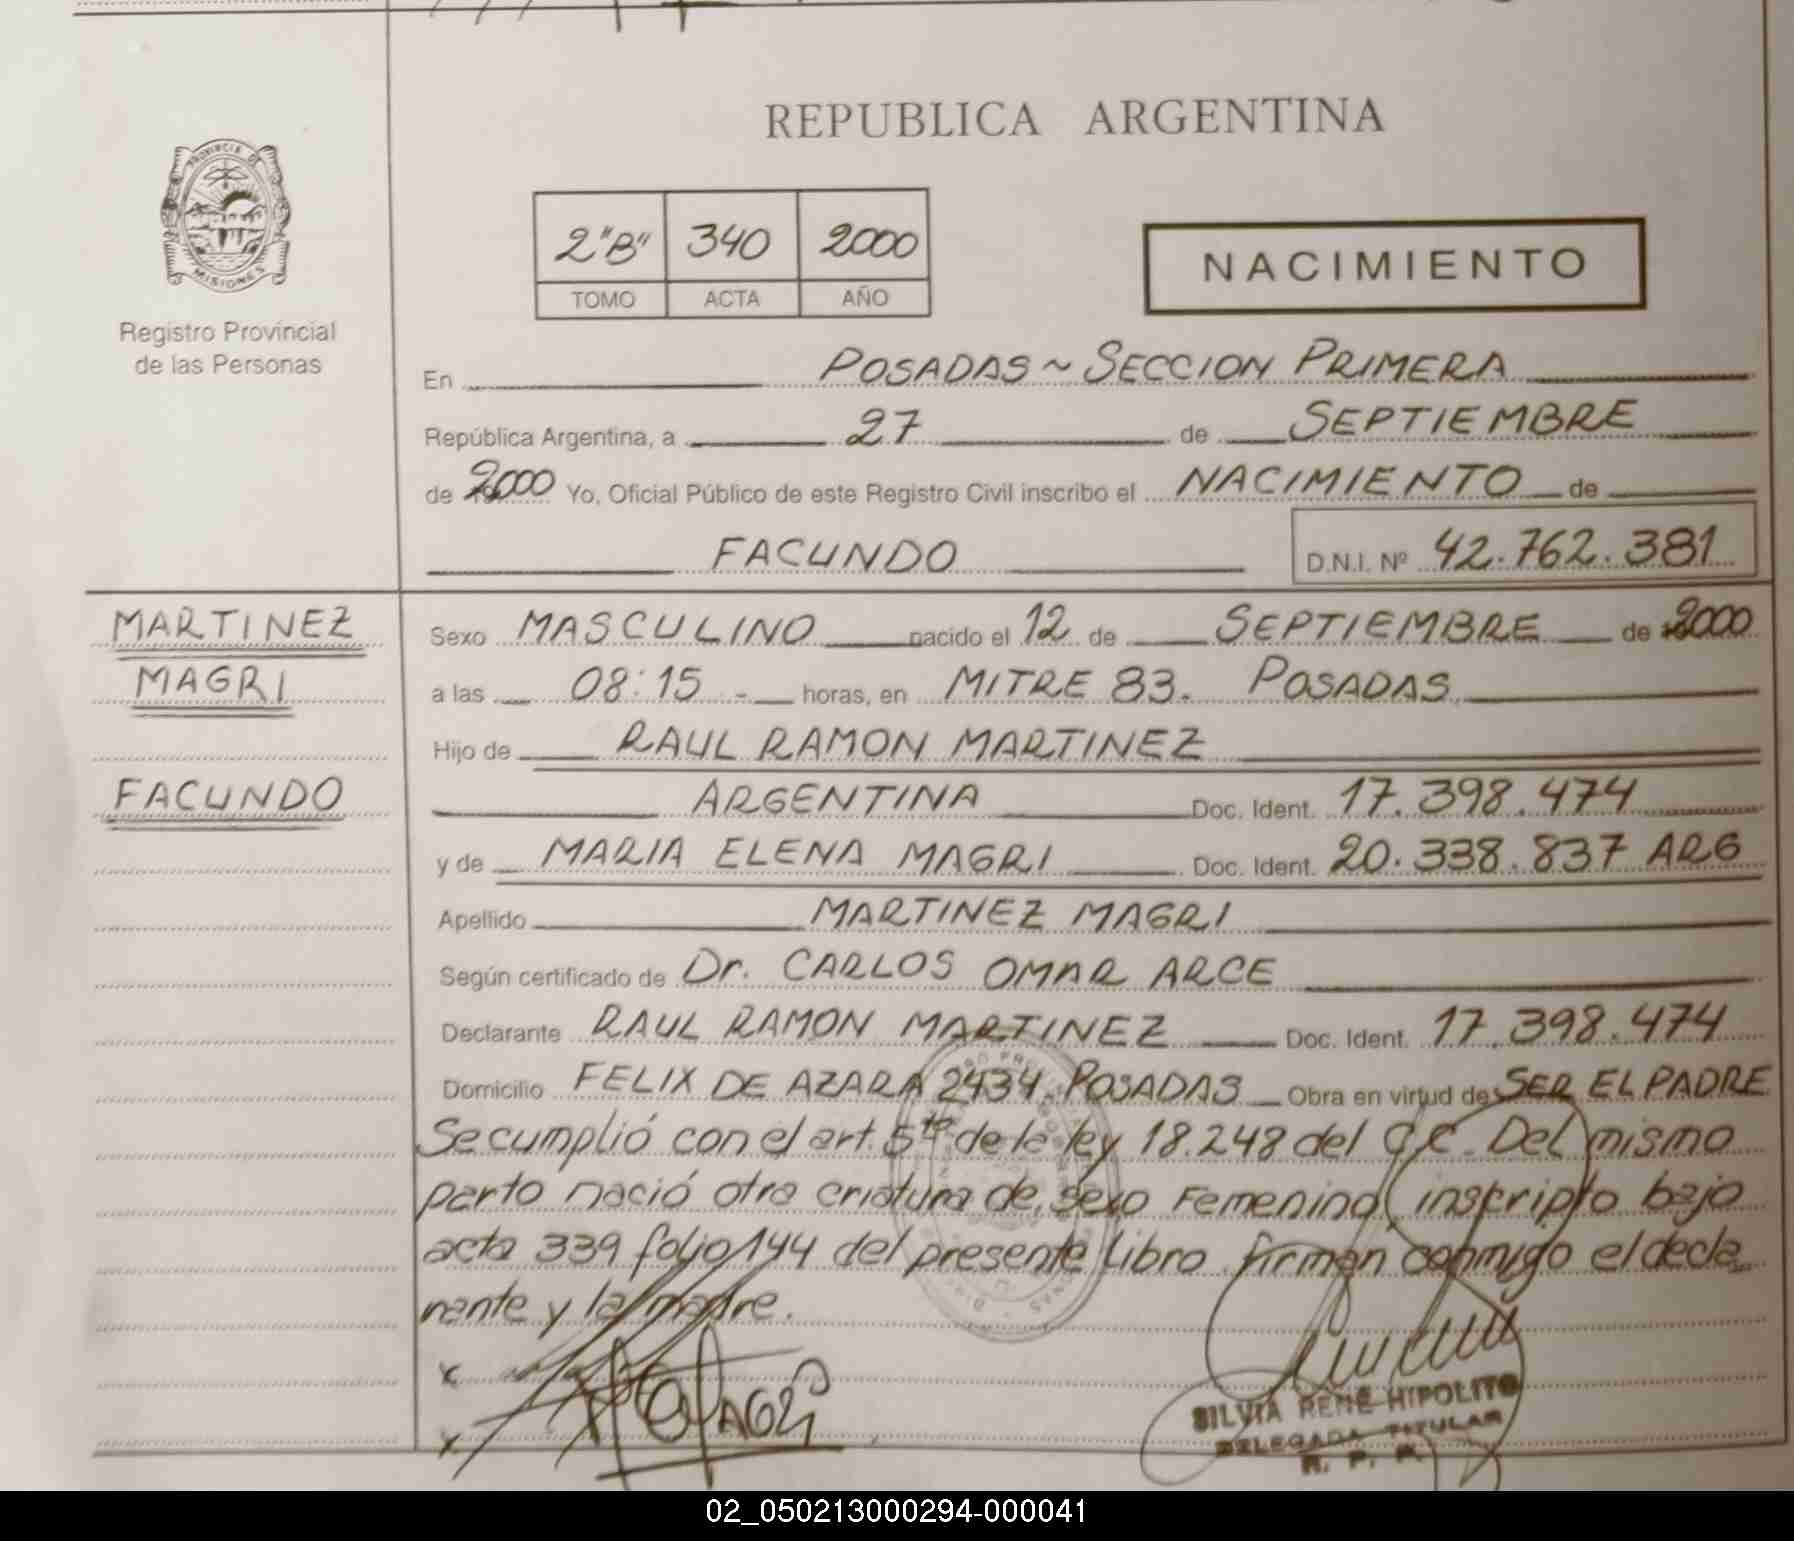 REPUBLICA ARGENTINA
PROVINCIA DE
MISIONES
Registro Provincial
de las Personas
2"B" 340 2000
TOMO ACTA AÑO
NACIMIENTO
En POSADAS ~ SECCION PRIMERA
República Argentina, a 27 de SEPTIEMBRE
de 2000 Yo, Oficial Público de este Registro Civil inscribo el NACIMIENTO de
FACUNDO D.N.I. Nº 42.762.381
MARTINEZ
MAGRI
FACUNDO
Sexo MASCULINO nacido el 12 de SEPTIEMBRE de 2000
a las 08:15 - horas, en MITRE 83. POSADAS
Hijo de RAUL RAMON MARTINEZ
ARGENTINA Doc. Ident. 17.398.474
y de MARIA ELENA MAGRI Doc. Ident. 20.338.837 ARG
Apellido MARTINEZ MAGRI
Según certificado de Dr. CARLOS OMAR ARCE
Declarante RAUL RAMON MARTINEZ Doc. Ident. 17.398.474
Domicilio FELIX DE AZARA 2434. POSADAS Obra en virtud de SER EL PADRE
Se cumplió con el art. 5to de la ley 18.248 del C.C. Del mismo
parto nació otra criatura de sexo Femenino, inscripto bajo
acta 339 folio 144 del presente libro. Firman conmigo el decla
rante y la madre.
x
x MAGRI
SILVIA RENE HIPOLITO
DELEGADA TITULAR
R. P. P.
02_050213000294-000041